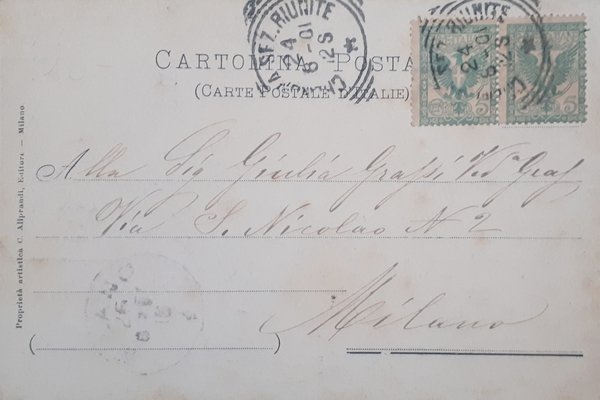 CARTOLINA POSTA
(CARTE POSTALE D'ITALIE)
RIUNITE
24
6-01
12S
RIUNITE
24
6-01
12S
5
5
Alla Sig Giulia Grassi Ved^a Graf
Via S. Nicolao N 2
Milano
Proprietà artistica C. Aliprandi, Editore — Milano